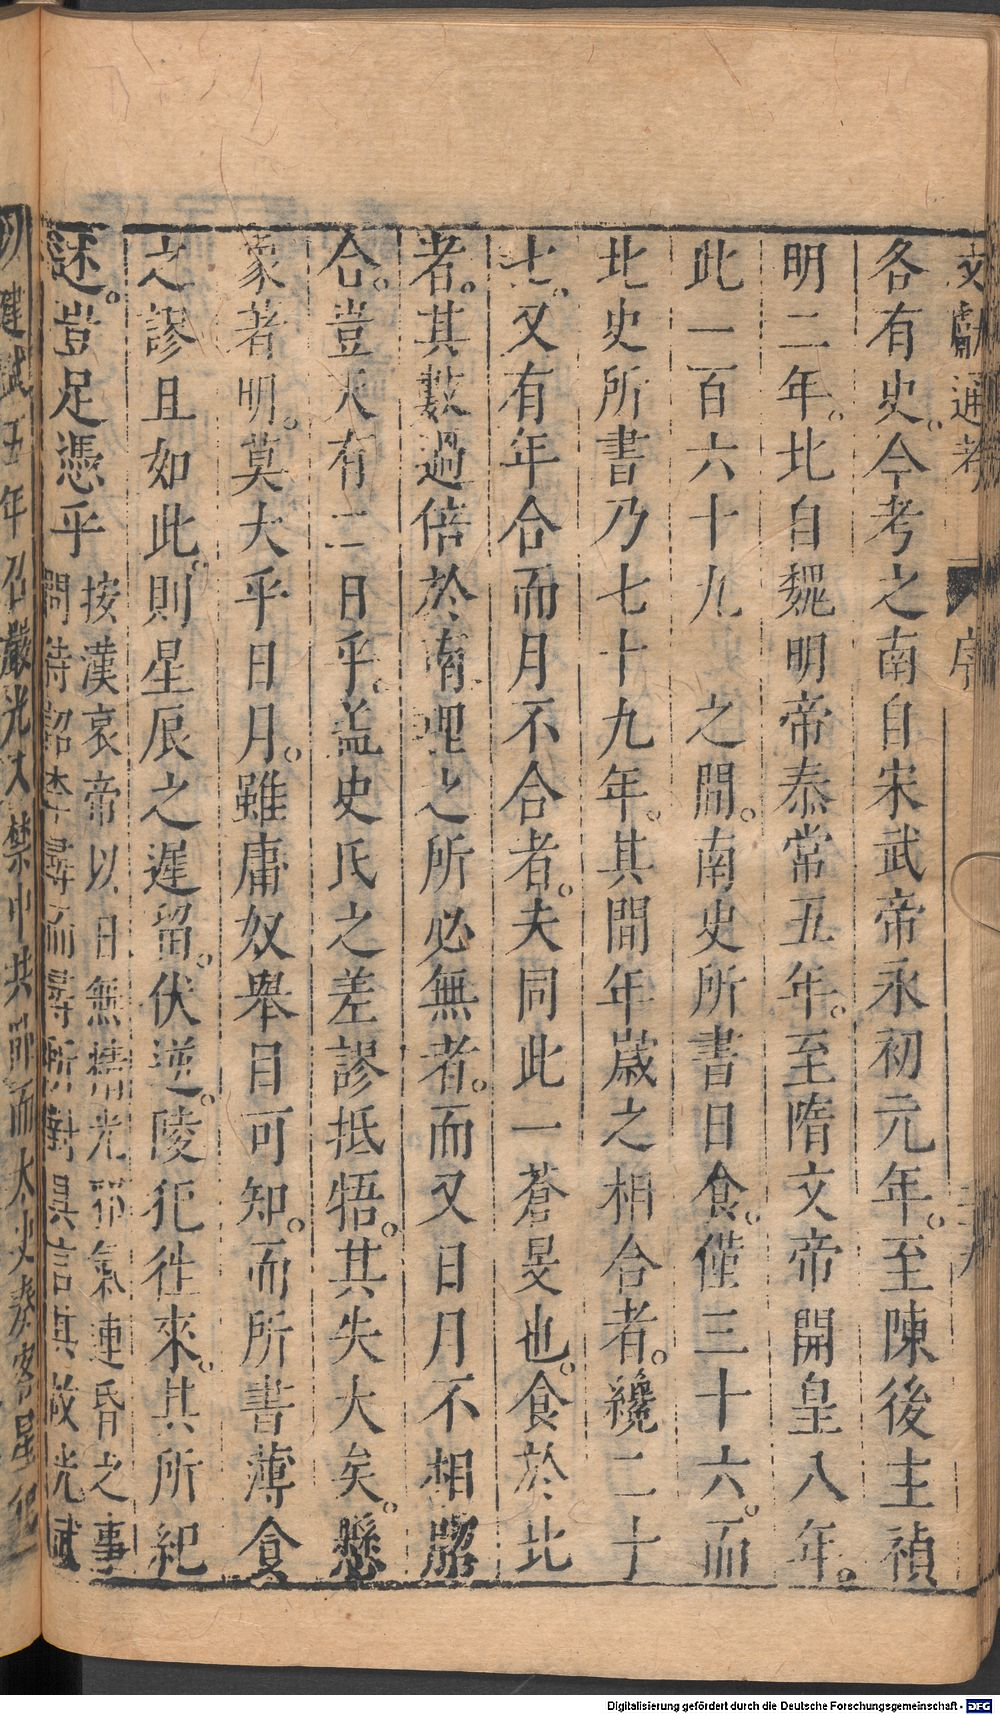 文獻通考 序
各有史。今考之南自宋武帝永初元年。至陳後主禎
明二年。北自魏明帝泰常五年。至隋文帝開皇八年。
此一百六十九 之間。南史所書日食。僅三十六。而
北史所書乃七十九年。其間年歲之相合者。纔二十
七。又有年合而月不合者。夫同此一蒼旻也。食於北
者。其數過倍於南理之所必無者。而又日月不相脗
合。豈天有二日乎。盖史氏之差謬抵牾。其失大矣。懸
象著明。莫大乎日月。雖庸奴舉目可知。而所書薄食
之謬且如此。則星辰之遲留。伏逆。陵犯徃來。其所紀
述。豈足憑乎
按漢哀帝以日無精光邪氣連昏之事
問待詔李尋而尋所對具言其故光武
建武五年召嚴光入禁中共卧而太史奏客星犯
Digitalisierung gefördert durch die Deutsche Forschungsgemeinschaft - DFG